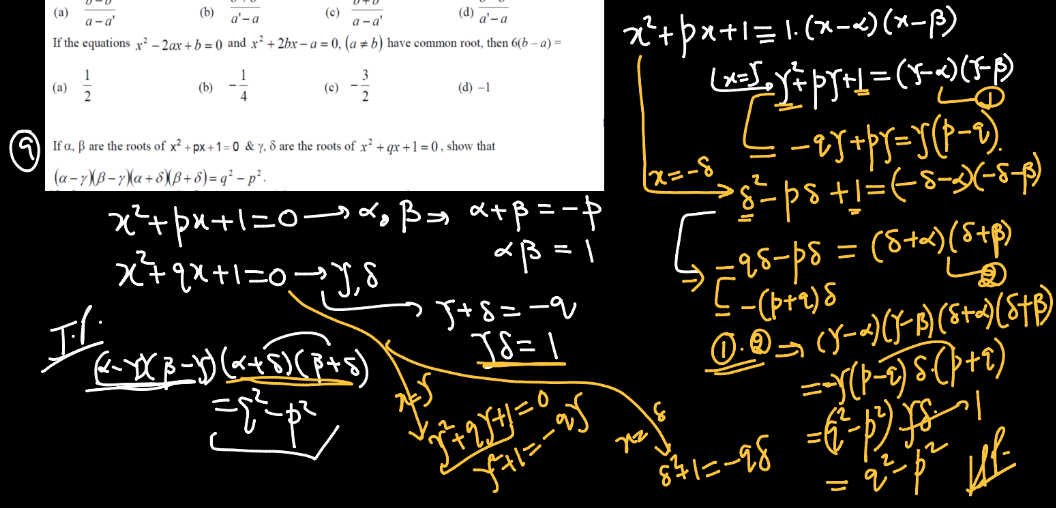 (a) a – a' (b) a' – a (c) a – a' (d) a' – a
If the equations x² – 2ax + b = 0 and x² + 2bx – a = 0, (a ≠ b) have common root, then 6(b – a) =
(a) 1/2 (b) –1/4 (c) –3/2 (d) –1
9 If α, β are the roots of x² + px + 1 = 0 & γ, δ are the roots of x² + qx + 1 = 0, show that
(α – γ)(β – γ)(α + δ)(β + δ) = q² – p².
x²+px+1=0 → α, β ⇒ α+β = –p
αβ = 1
x²+qx+1=0 → γ, δ
γ+δ = –q
γδ = 1
(α–γ)(β–γ)(α+δ)(β+δ)
= q²–p²
x=γ
γ²+qγ+1=0
γ²+1=–qγ
x=δ
δ²+1=–qδ
x²+px+1 ≡ 1·(x–α)(x–β)
x=γ, γ²+pγ+1=(γ–α)(γ–β)
①
–qγ+pγ=γ(p–q)
x=–δ
δ²–pδ+1=(–δ–α)(–δ–β)
⇒ –qδ–pδ = (δ+α)(δ+β)
②
–(p+q)δ
①·② ⇒ (γ–α)(γ–β)(δ+α)(δ+β)
=–γ(p–q)δ·(p+q)
=(q²–p²)γδ 1
= q²–p²